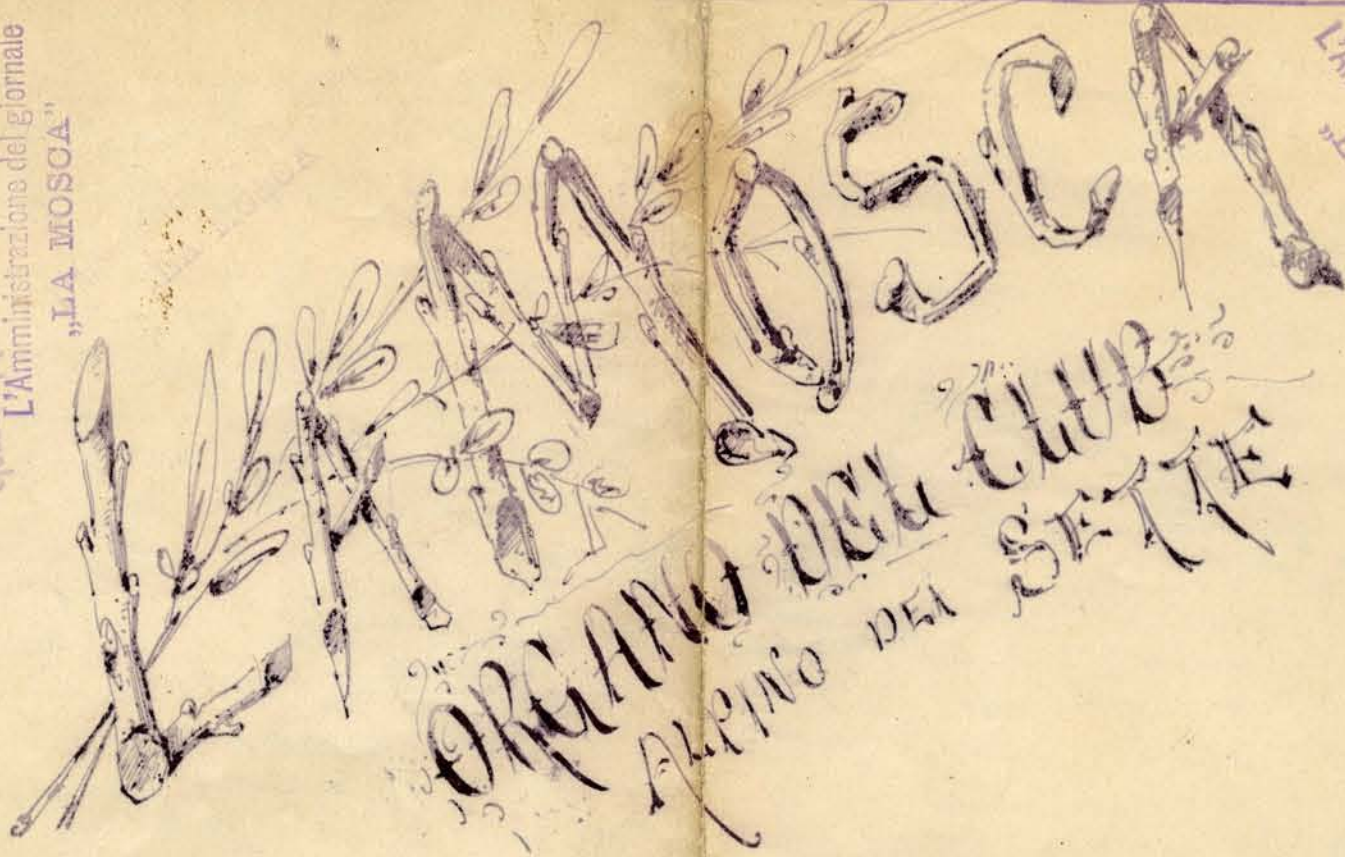 L'Amministrazione del giornale
„LA MOSCA"
LA MOSCA
ORGANO DEL CLUB
ALPINO DEI SETTE